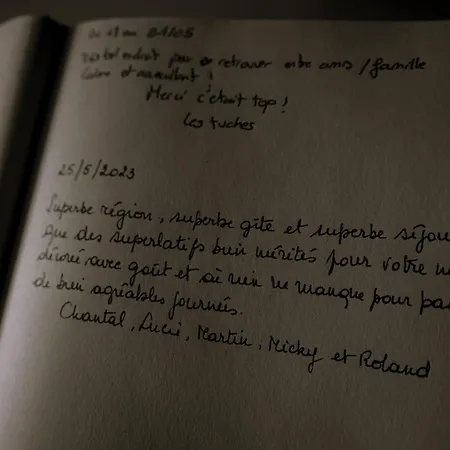 Du 28 au 01/05
Très bel endroit pour se retrouver entre amis / famille
Calme et accueillant !
Merci c'était top !
Les tuches
25/5/2023
Superbe région, superbe gîte et superbe séjou
que des superlatifs bien mérités pour votre
décorée avec goût et où rien ne manque pour pa
de bien agréables journées.
Chantal, Lucie, Martin, Micky et Roland